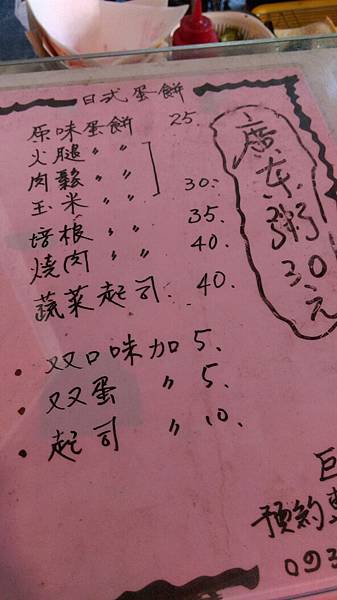 日式蛋餅
原味蛋餅 25.
火腿 〃 〃
肉鬆 〃 〃 30.
玉米 〃 〃
培根 〃 〃 35.
燒肉 〃 〃 40.
蔬菜起司. 40.
• 双口味加 5.
• 双蛋 〃 5.
• 起司 〃 10.
廣东粥30元
預約
093